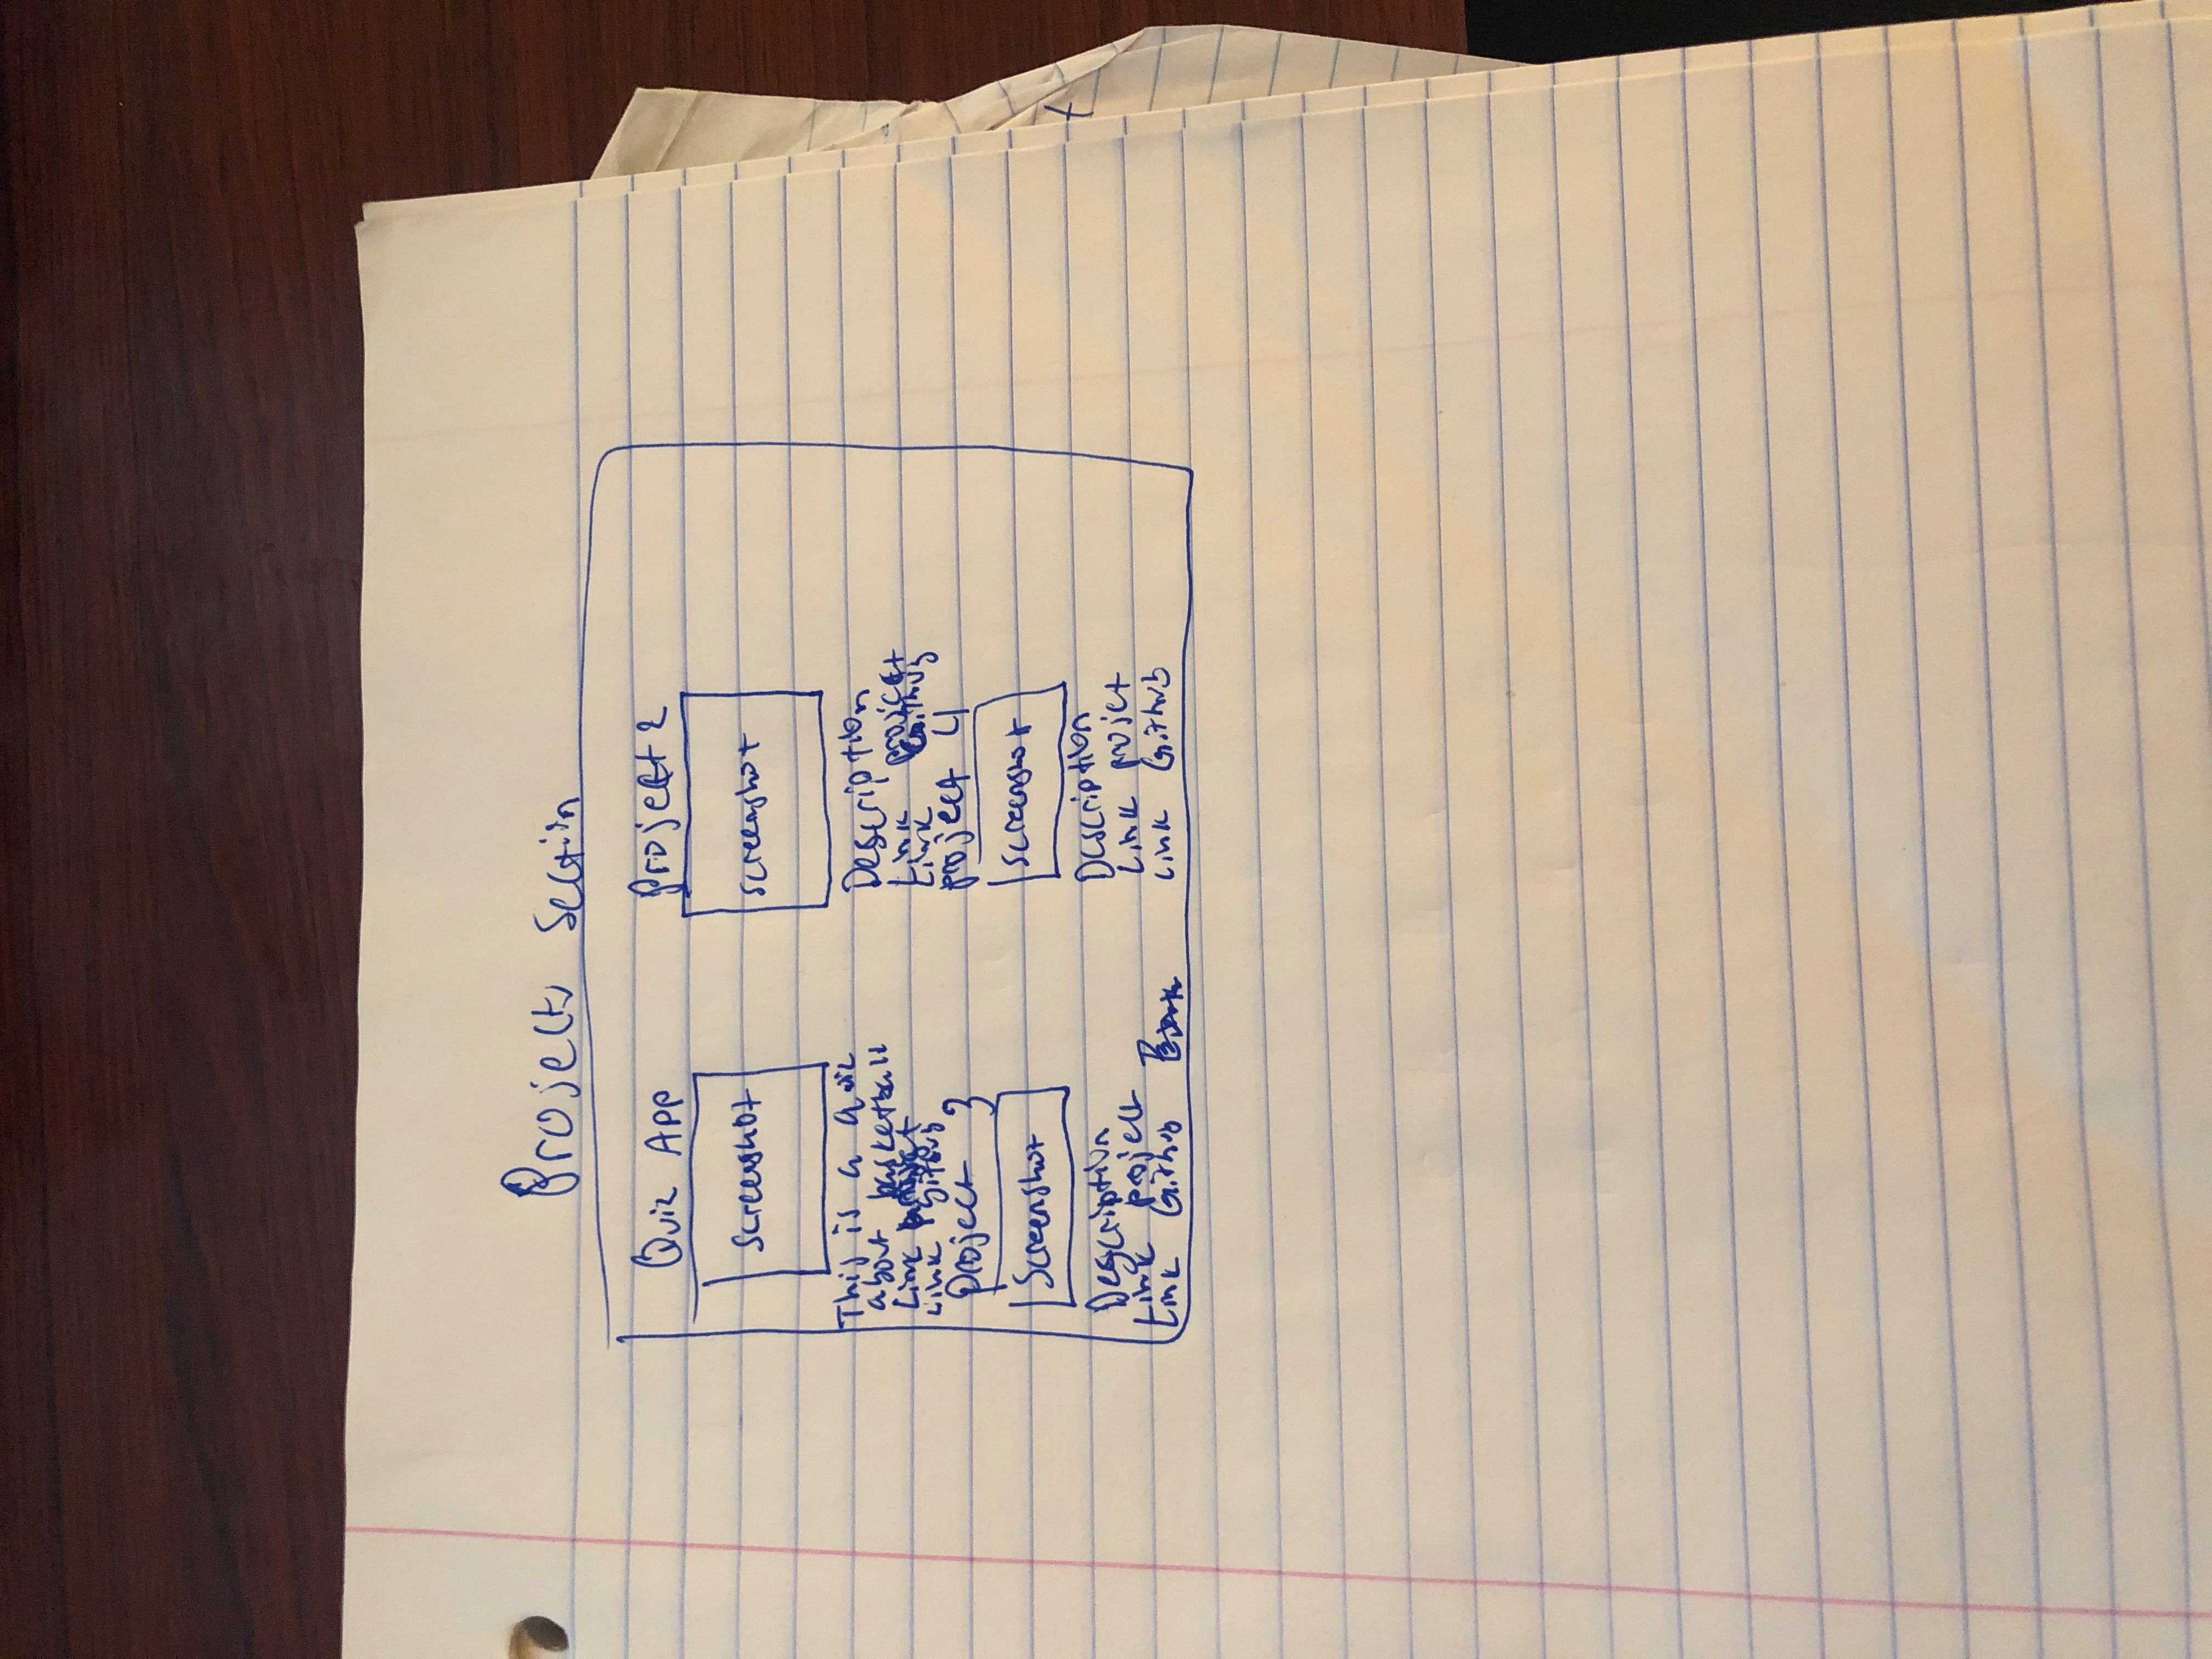 Projects Section
Quiz App
Screenshot
This is a quiz
about basketball
Link project
Link github
Project 2
Screenshot
Description
Link project
Link Github
Project 3
Screenshot
Description
Link project
Link Github
Project 4
Screenshot
Description
Link project
Link Github